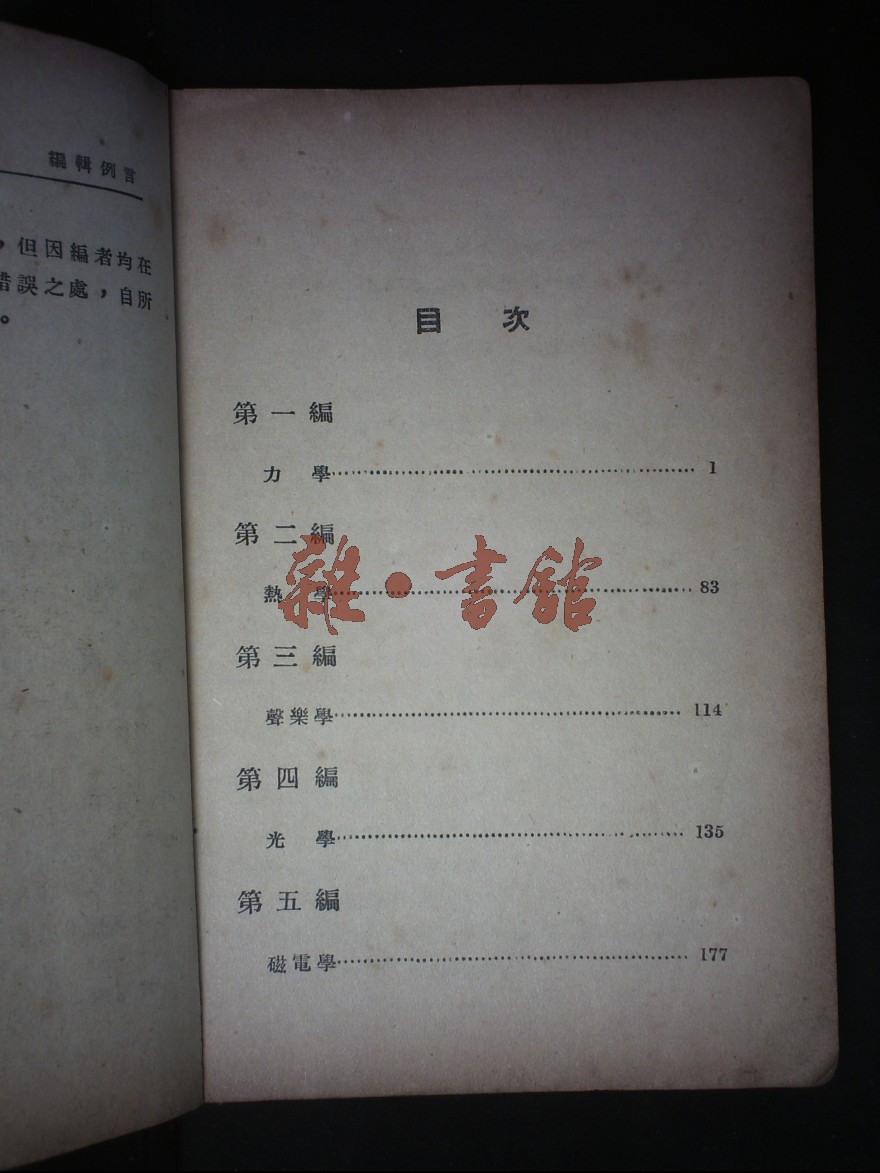 編輯例言
，但因編者均在
錯誤之處，自所
。
目 次
第一編
力 學 1
第二編
熱 學 83
雜・書館
第三編
聲樂學 114
第四編
光 學 135
第五編
磁電學 177